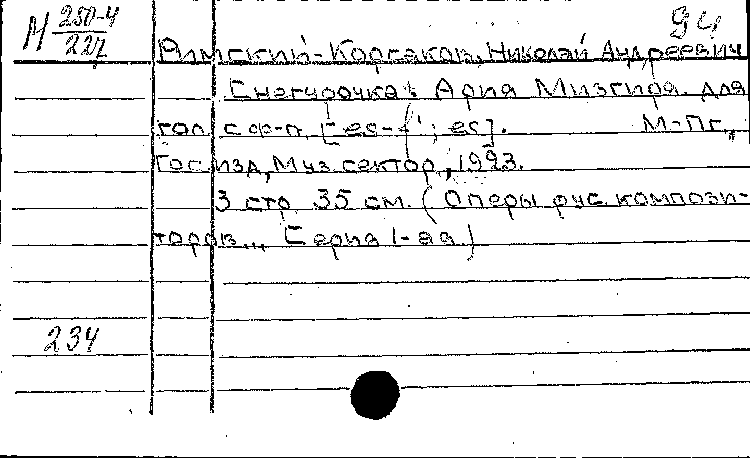 94
М 250-4
227
Римский-Корсаков, Николай Андреевич
Снегурочка: Ария Мизгиря. Для
гол. с ф-п. [es-f¹; es]. М-Пг.,
Гос. изд, Муз. сектор, 1923.
3 стр. 35 см. (Оперы рус. компози-
торов... Серия 1-ая.)
234